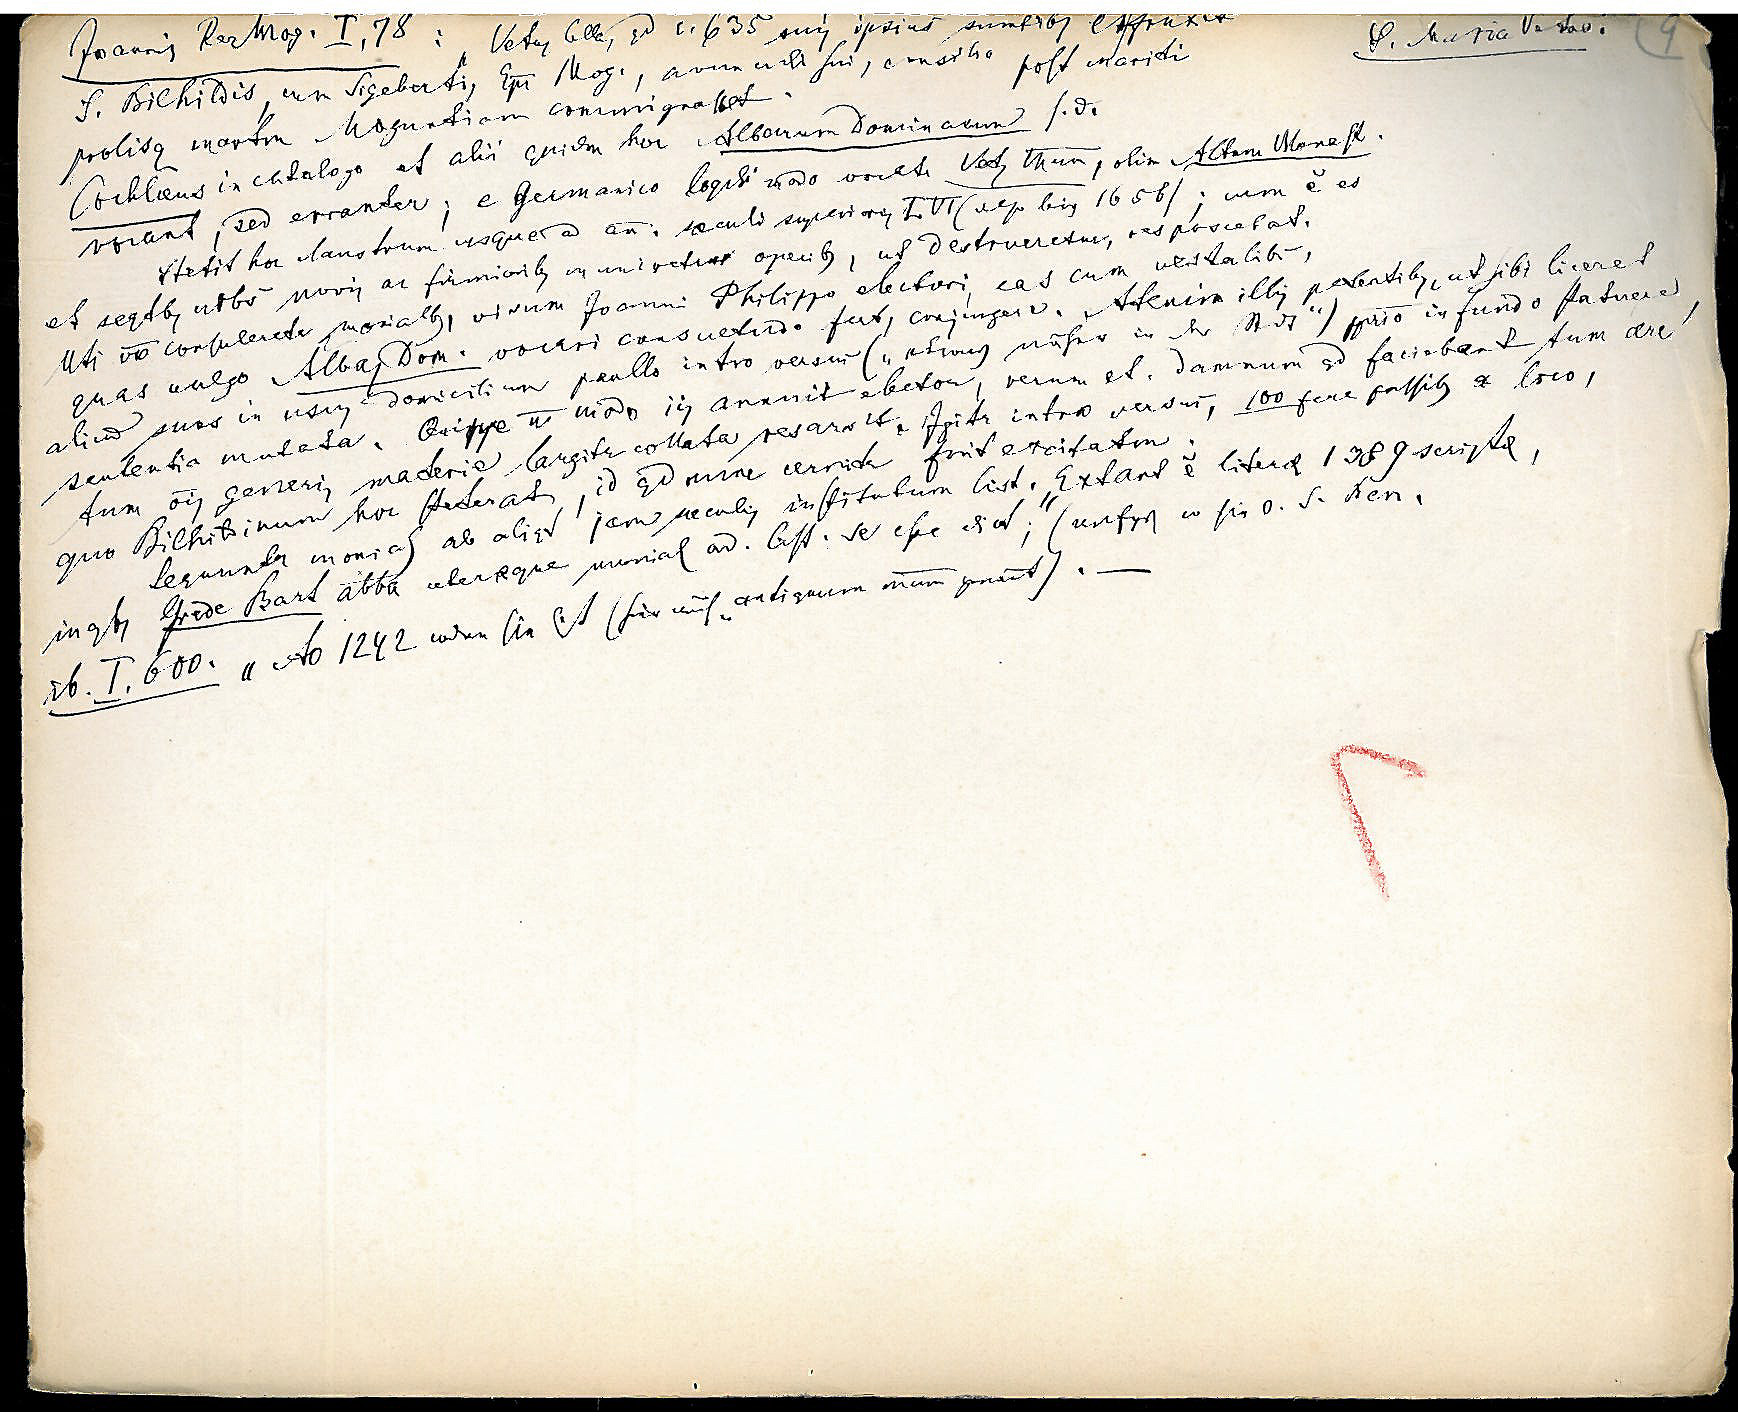 S. Maria Vet. 9
Joannis Rer Mog. I, 78 : „ Vetus Cella, qd c. 635 suis ipsius sumtibus exstruxit
S. Bilhildis, cum Sigeberti, Epi Mog., avunculi sui, consilio post mariti
prolisq mortem Moguntiam commigrasset.
Cochlæus in catalogo et alii quidem hoc Albarum Dominarum s.d.
vocant, sed erranter; e Germanico loqdi modo vocatr Vetus Mun, olim Altum Monast.
Stetit hoc claustrum usque ad an. sæculi superioris LVI (velp bis 1656); cum ē eo
et seqtb urbs novis ac firmiorib muniretur operib, ut destrueretur, res poscebat.
Uti vo consuleretr monialb, visum Joanni Philippo electori, eas cum vestalibus,
quas vulgo Albas Dom. vocari consuetudo fert, conjungere. Attenim illis petentib, ut sibi liceret
aliud suos in usus domicilium paullo introversus („etwas näher in der Stdt") pprio in fundo statuere,
sententia mutata. Quippe n modo iis annuit elector, verum et. damnum qd faciebant tum ære
tum ois generis materie largitr collata resarsit. Igitr intro versus, 100 fere passib a loco,
quo Bilhildinum hoc steterat, id qd nunc cernitr fuit excitatum.
Sequuntr monial ab aliqt jam seculis institutum Cist. „Extant ē literæ 1389 scriptæ,
in qb Grede Bart abba ceteræque monial ord. Cist. se esse dict; (
ib. I. 600. „ Ao 1242 antiquum